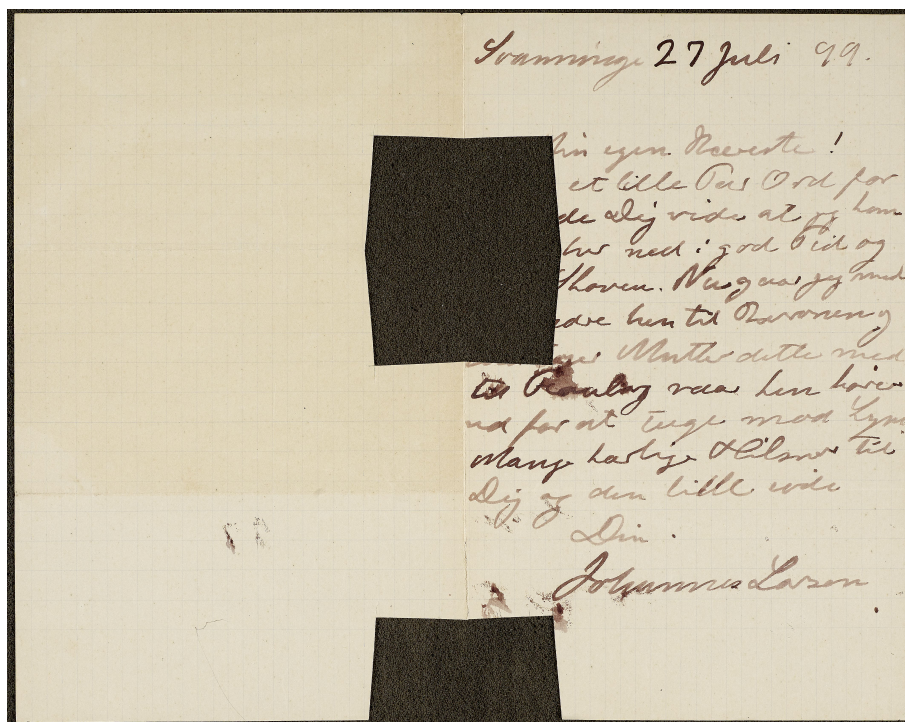 Svanninge 27 Juli 99.
in egen Kæreste!
et lille Par Ord for
de Dig vide at jeg kom
her ned i god Tid og
Skoven. Nu gaar jeg med
dre hen til Baronen og
Mutter dette med
til Faaborg naar hun kører
ud for at tage mod
Mange kærlige Hilsner til
Dig og den lille
Din
Johannes Larsen